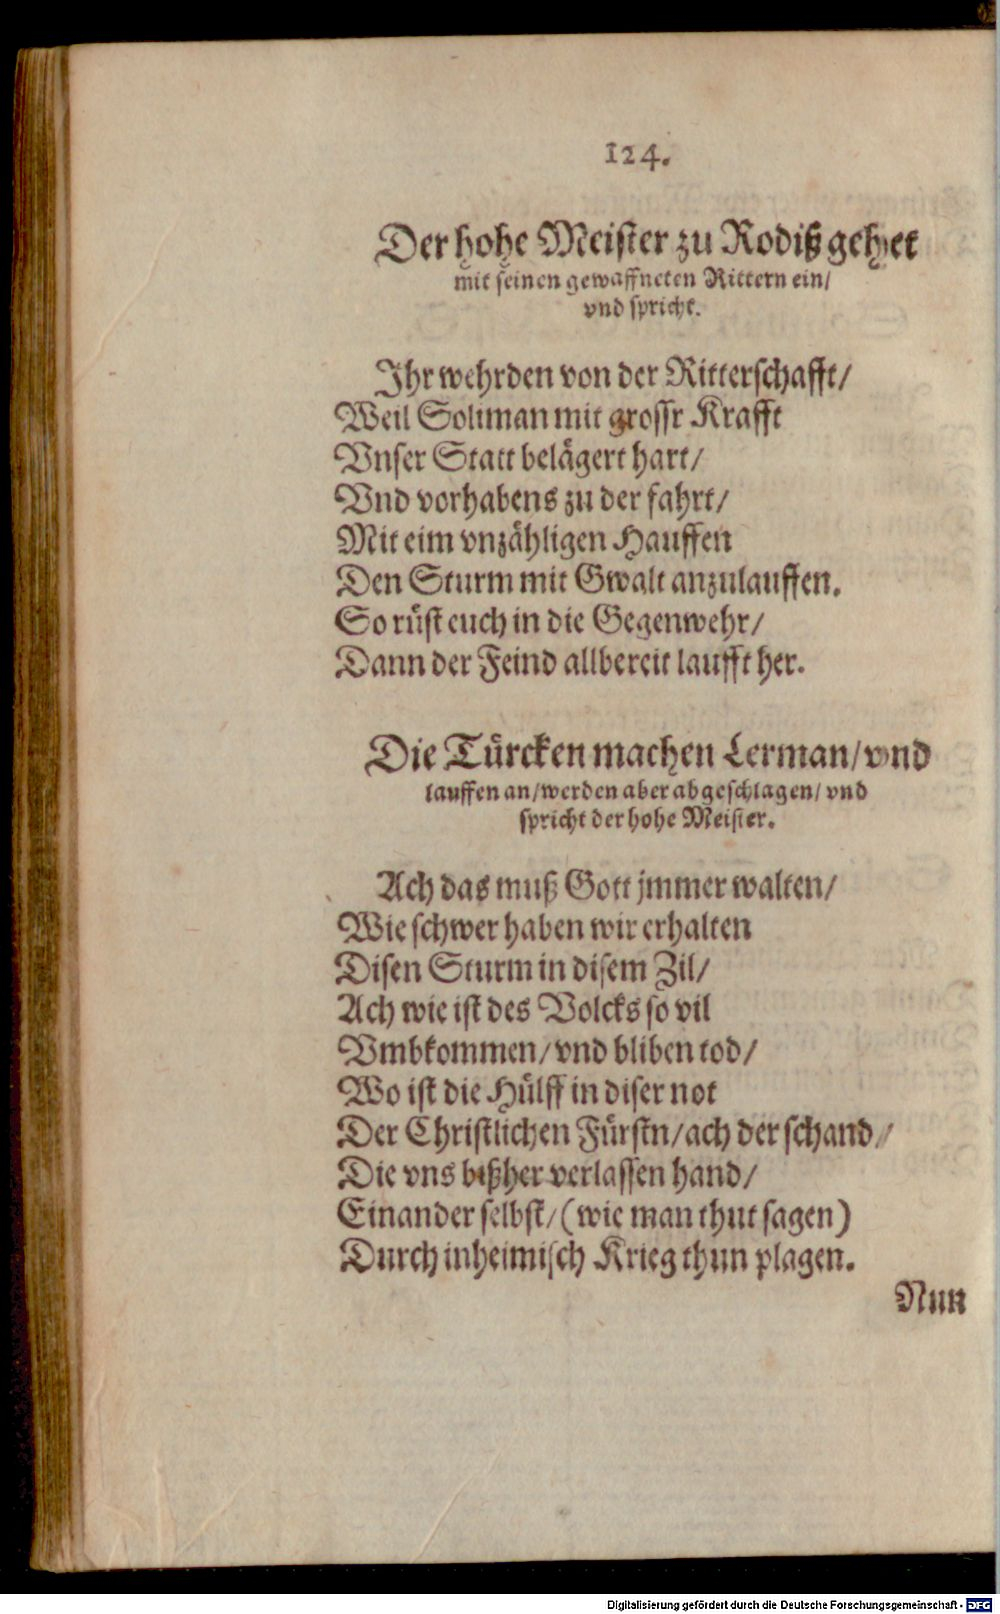 124.
Der hohe Meister zu Rodiß gehet
mit seinen gewaffneten Rittern ein/
vnd spricht.
Ihr wehrden von der Ritterschafft/
Weil Soliman mit grossr Krafft
Vnser Statt belägert hart/
Vnd vorhabens zu der fahrt/
Mit eim vnzähligen Hauffen
Den Sturm mit Gwalt anzulauffen.
So rüst euch in die Gegenwehr/
Dann der Feind allbereit laufft her.
Die Türcken machen Lerman/ vnd
lauffen an/ werden aber abgeschlagen/ vnd
spricht der hohe Meister.
Ach das muß Gott jmmer walten/
Wie schwer haben wir erhalten
Disen Sturm in disem Zil/
Ach wie ist des Volcks so vil
Vmbkommen/ vnd bliben tod/
Wo ist die Hülff in diser not
Der Christlichen Fürstn/ ach der schand/
Die vns bißher verlassen hand/
Einander selbst/ (wie man thut sagen)
Durch inheimisch Krieg thun plagen.
Nun
Digitalisierung gefördert durch die Deutsche Forschungsgemeinschaft - DFG